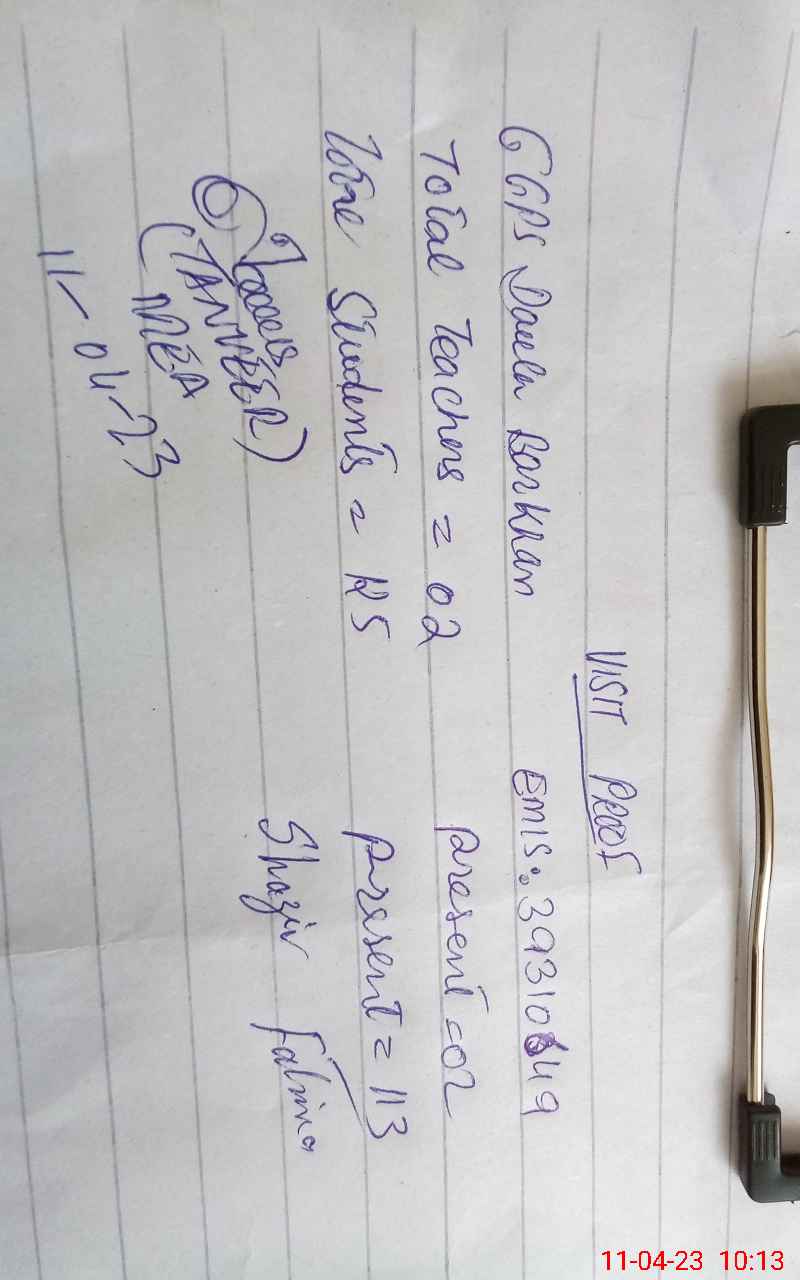 VISIT PROOF
GGPS Daula Barkhan EMIS: 39310 49
Total Teachers = 02 present = 02
Students = present = 113
Shazia Fatima
(TANVEER)
MEA
11-04-23
11-04-23 10:13